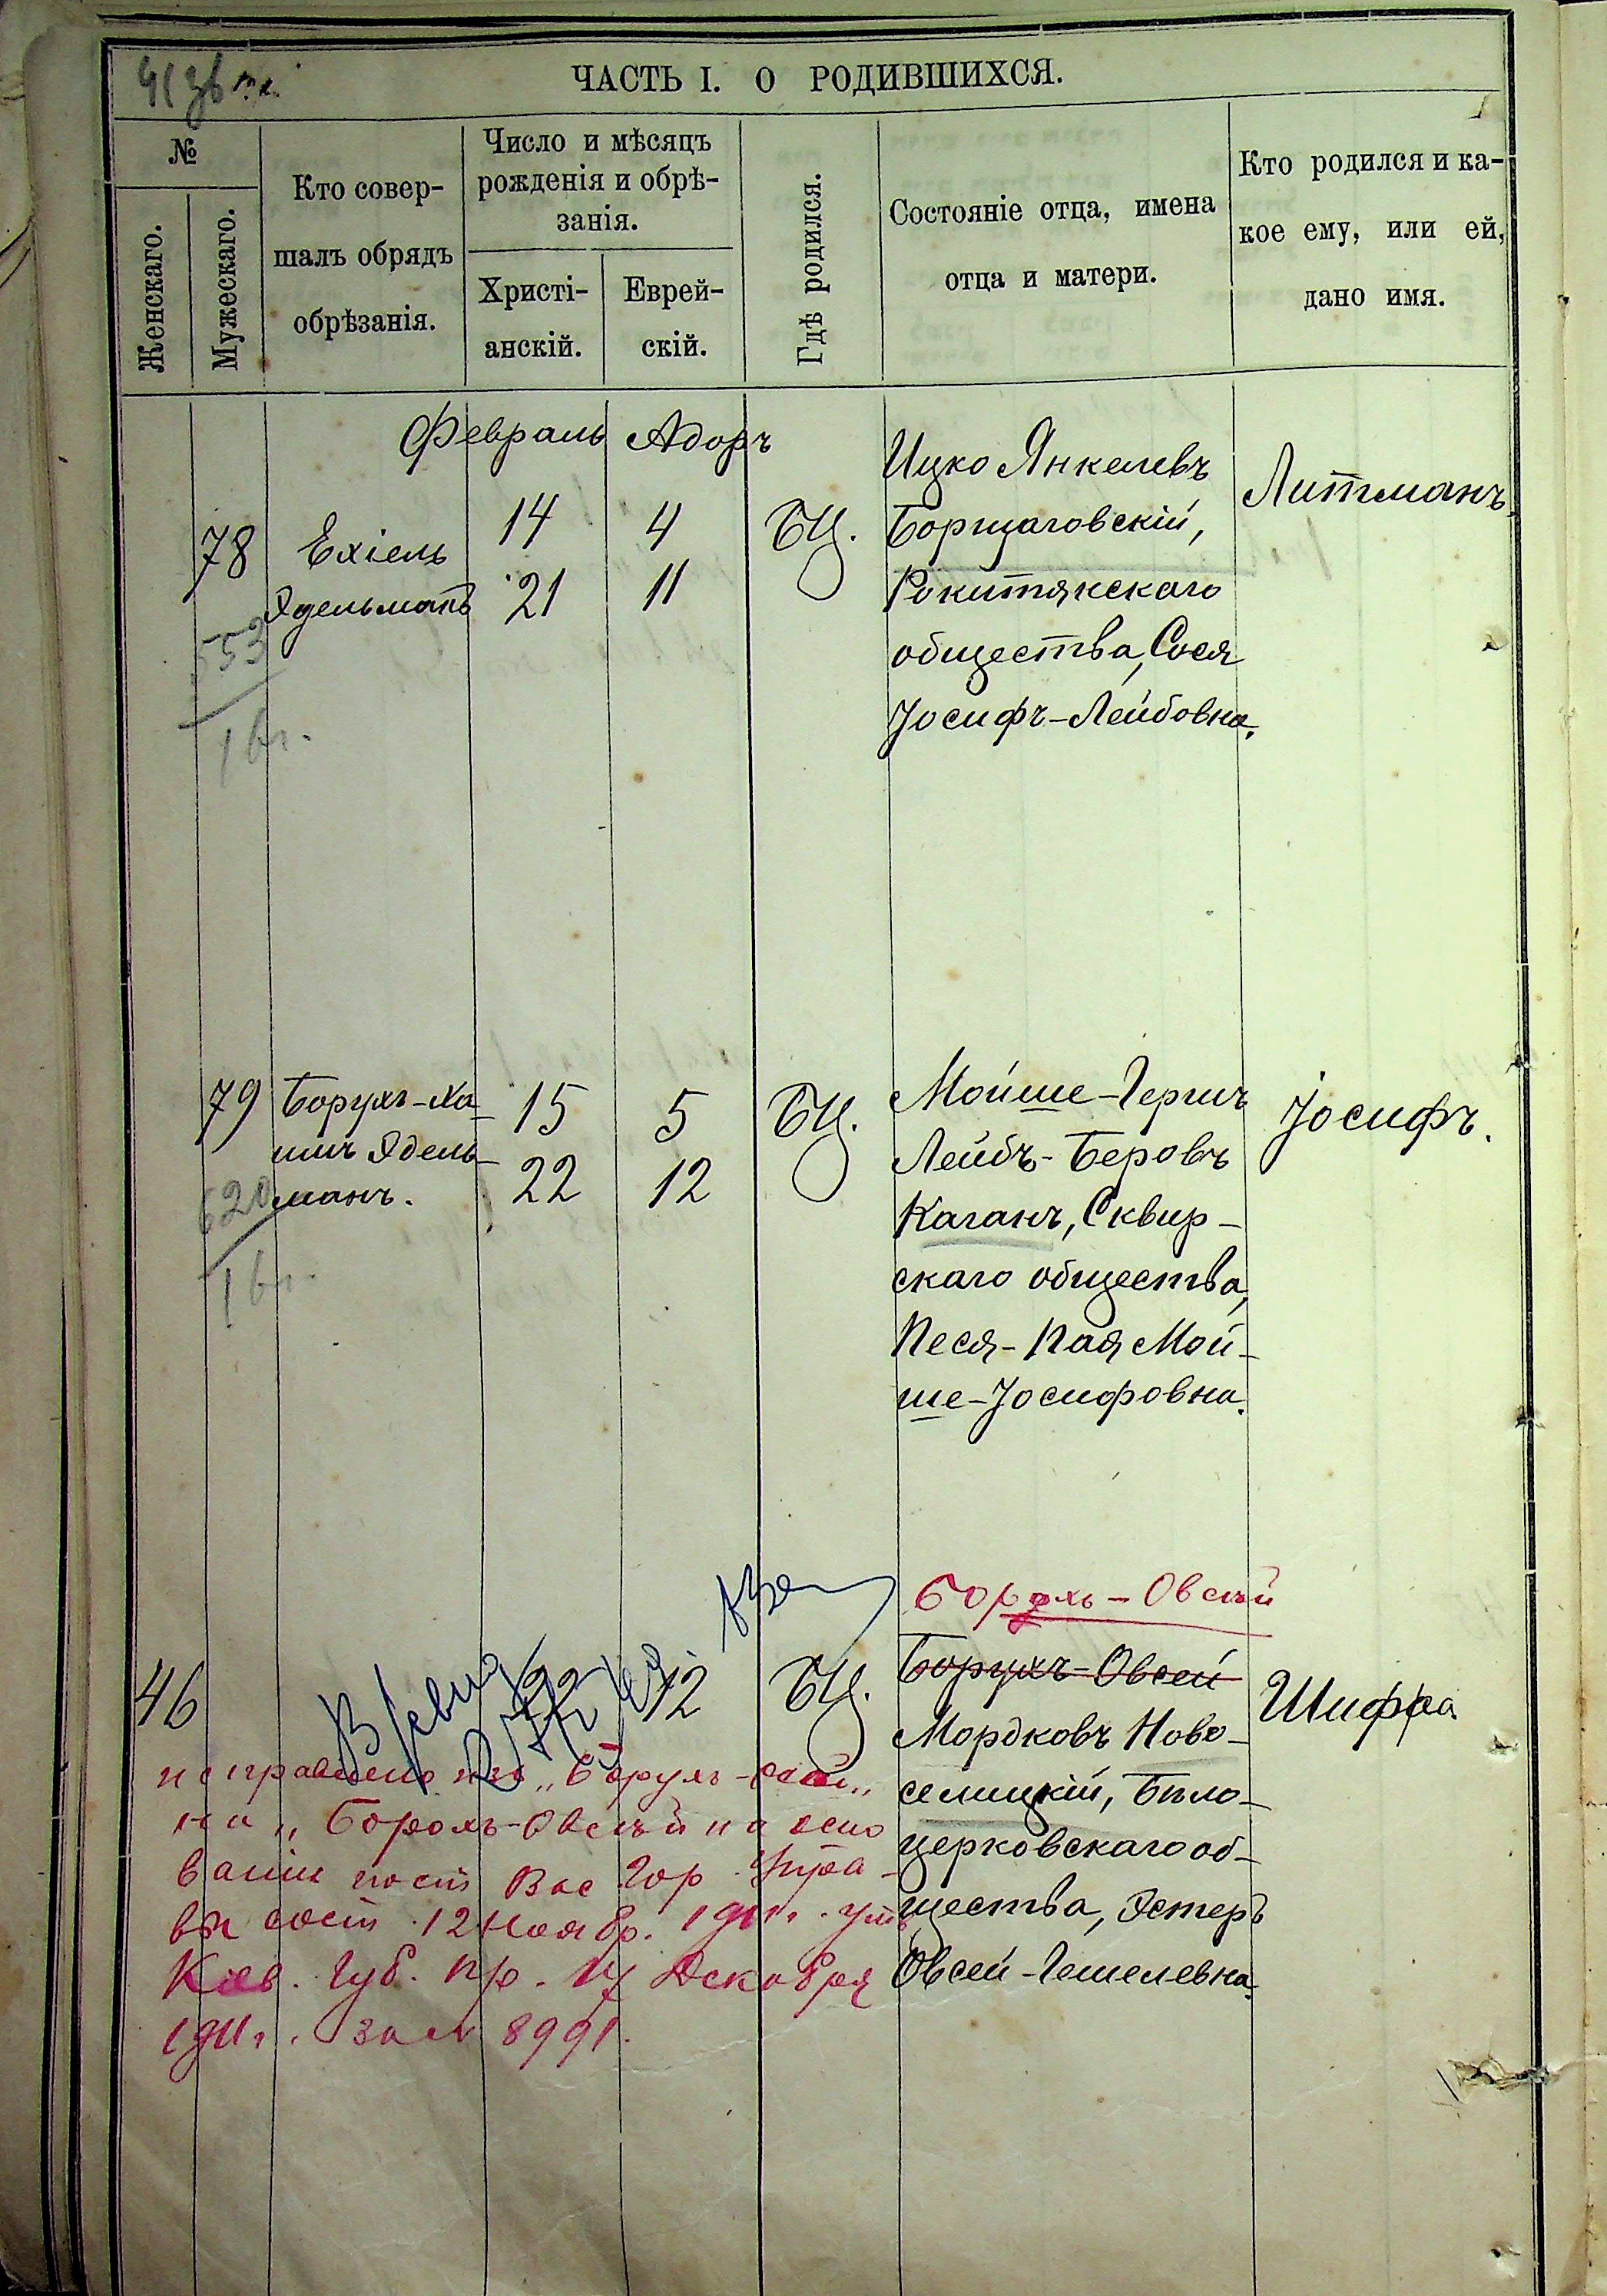 ЧАСТЬ I. О РОДИВШИХСЯ.
№
Женскаго.
Мужескаго.
Кто совер-
шалъ обрядъ
обрѣзанія.
Число и мѣсяцъ
рожденія и обрѣ-
занія.
Христі-
анскій.
Еврей-
скій.
Гдѣ родился.
Состояніе отца, имена
отца и матери.
Кто родился и ка-
кое ему, или ей,
дано имя.
Февраль Адоръ
78
Ехіель
Эдельманъ
553
14 4
21 11
БЦ.
Ицко Янкелевъ
Борщаговскій,
Рокитянскаго
общества, Сося
Іосифъ-Лейбовна.
Литманъ.
79
Борухъ-Ха-
имъ Эдель-
манъ.
620
15 5
22 12
БЦ.
Мойше-Гершъ
Лейбъ-Беровъ
Каганъ, Сквир-
скаго общества,
Песя-Пая Мой-
ше-Іосифовна.
Іосифъ.
46
22 12
БЦ.
Борохъ-Овсѣй
Борухъ-Овсей
Мордковъ Ново-
селицкій, Бѣло-
церковскаго об-
щества, Эстеръ
Овсей-Гешелевна.
Шифра.
исправлено изъ „Борухъ-Овсей„
на „Борохъ-Овсѣй на осно
ваніи пост Вас Гор Упра-
вы сост 12 Ноябр. 1911г. утв
Кіев. Губ. Пр. Декабря
1911г. за № 8991.